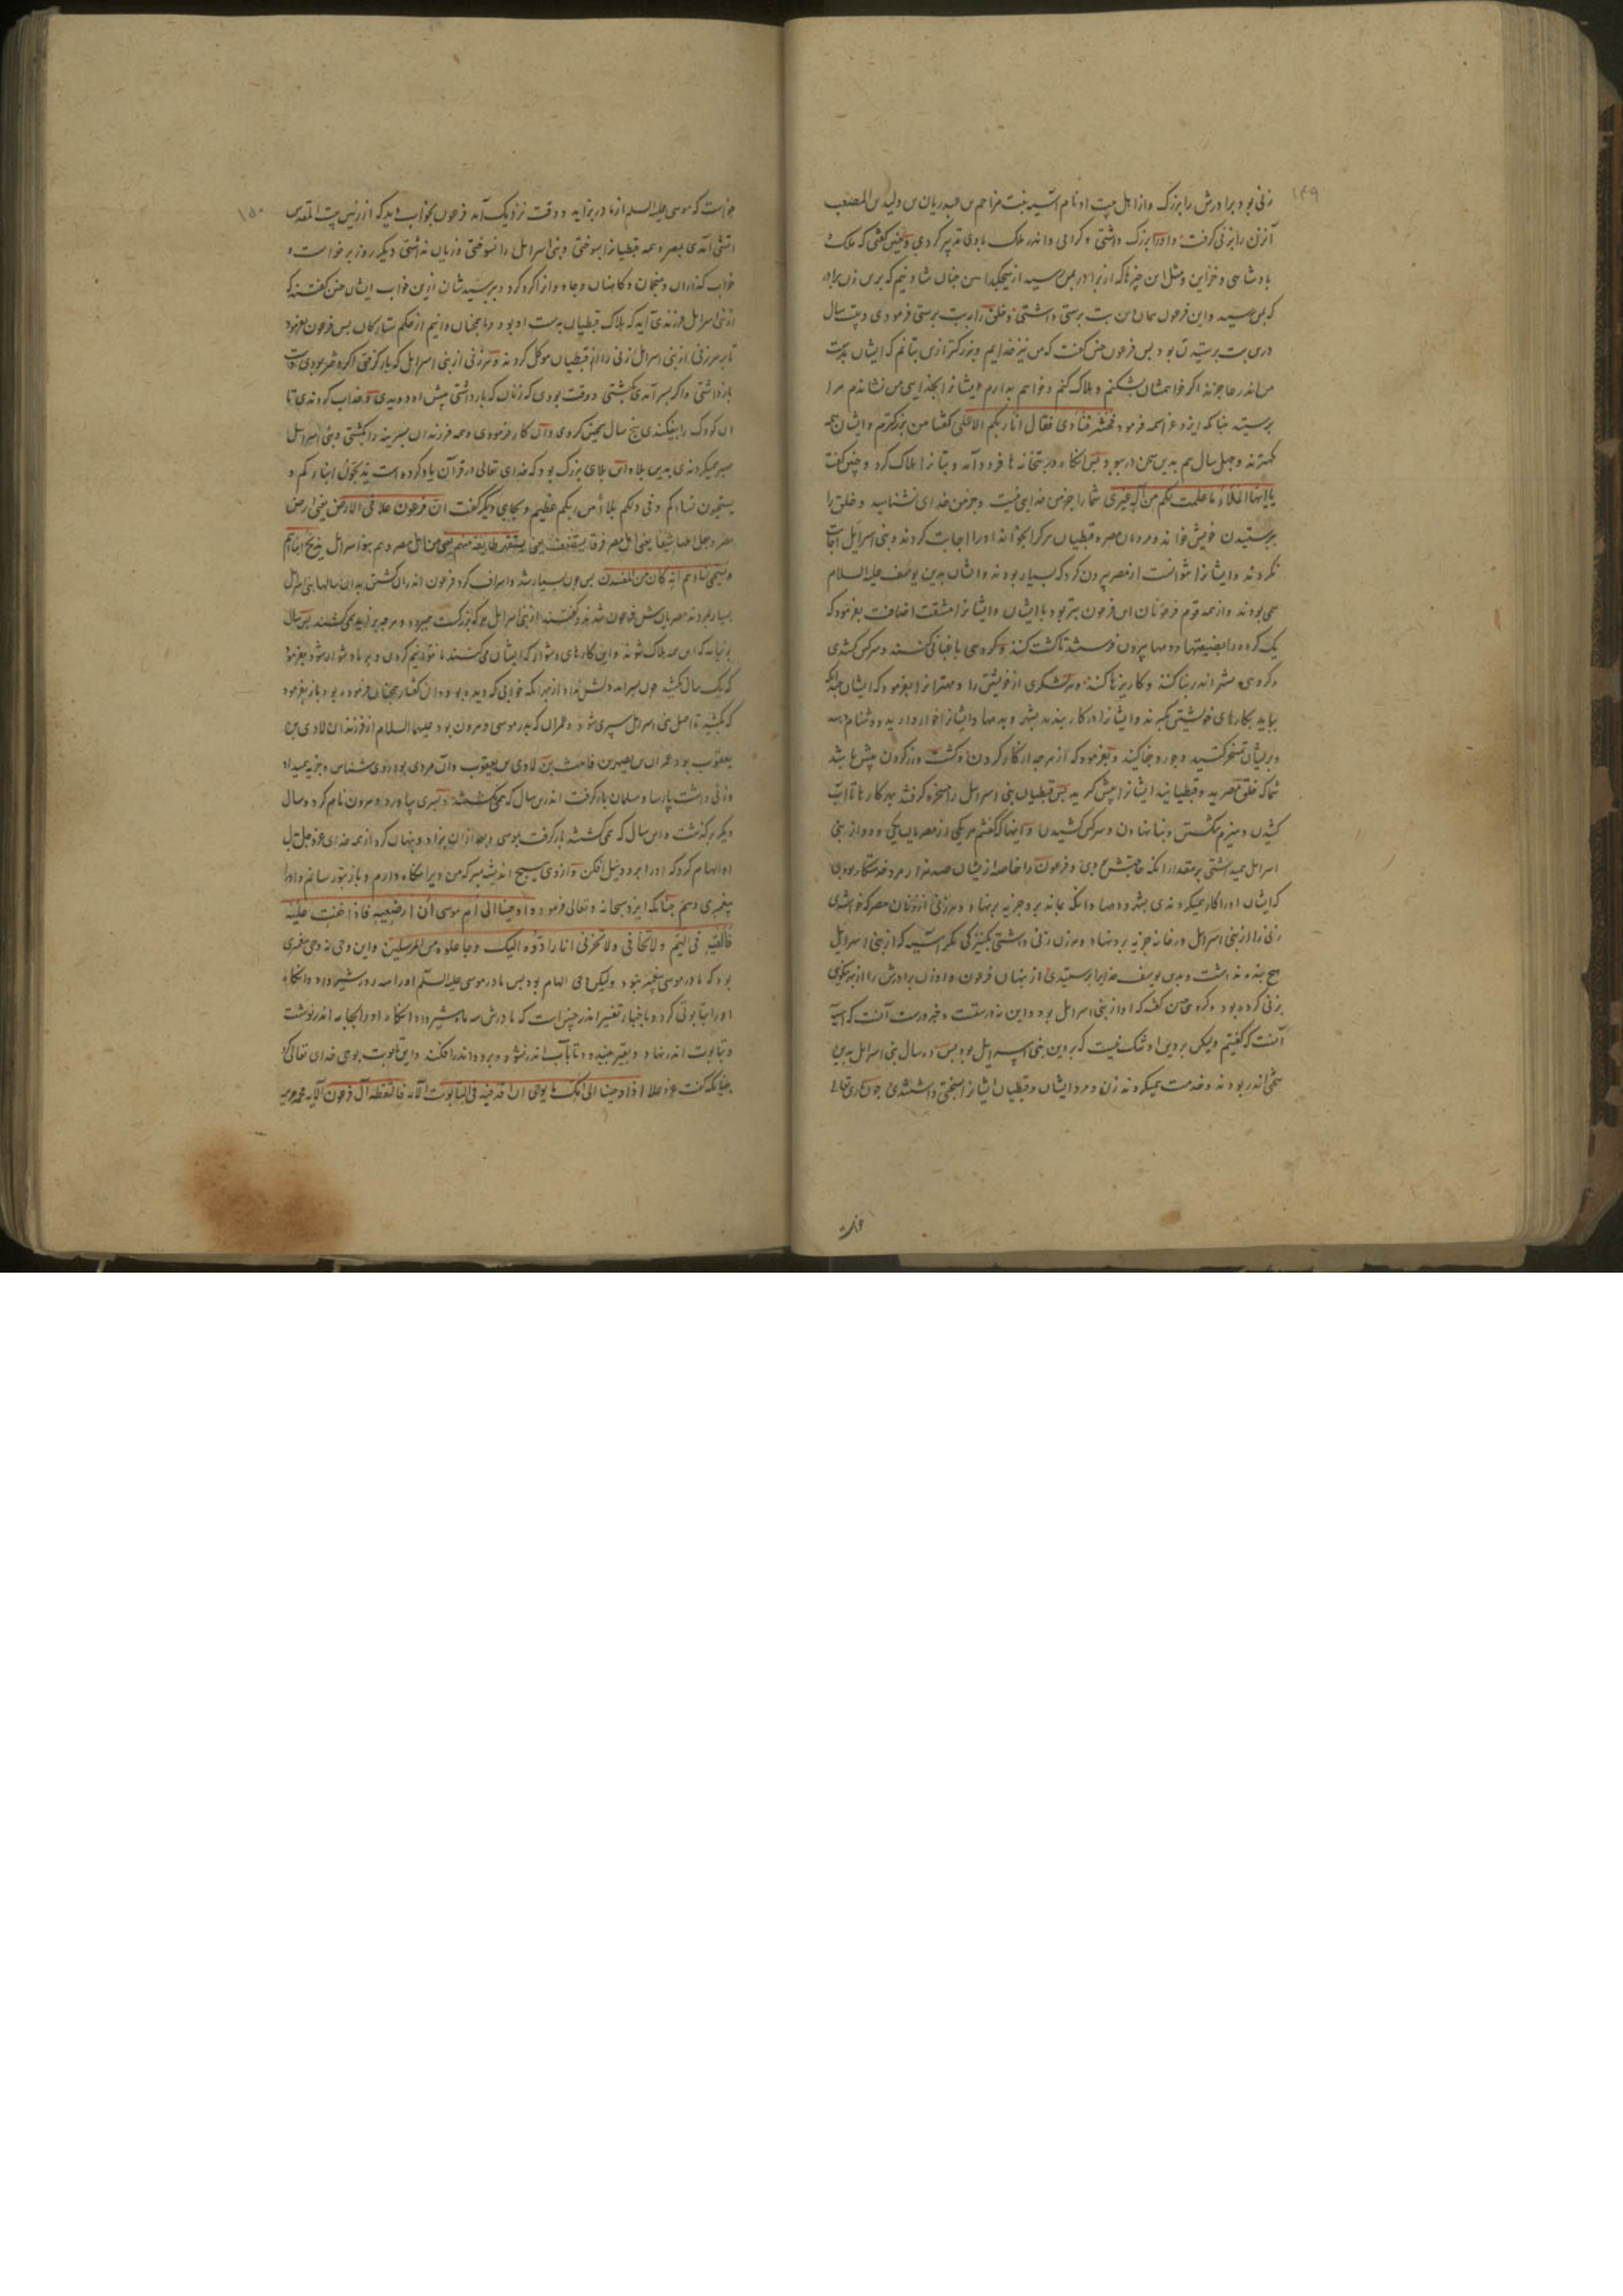 ۱۴۹
زنی بود برادرش را بزرگ و از اهل بیت او نام آسیه بنت مزاحم بن عبید ریان بن ولید بن المصعب
آن زن را بزنی گرفت و او را بزرگ داشتی و گرامی و اندر ملک با وی تدبیر کردی و چنین گفتی که ملک و
بادشاهی و خزاین و مثل این چیزها که از برادر بمن رسید از هیچکدام من چنان شاد نیم که برین زن برادر
که بمن رسید و این فرعون همان بت برستی داشتی و خلق را بت برستی فرمودی و بیست سال
درین بت برستیدن بود بس فرعون چنین گفت که من نیز خدایم و بزرگتر ازین بتانم که ایشان بدست
من اندر عاجزند اگر خواهمشان بشکنم و هلاک کنم و خواهم بدارم ایشانرا بخدایی من نشاندم مرا
برستید چنانکه ایزد عز اسمه فرمود فحشر فنادی فقال انا ربکم الاعلی گفتا من بزرگترم و ایشان همه
کهترند و چهل سال هم بدین سخن در ببود بس آنگاه در بتخانه ها فرود آمد و بتانرا هلاک کرد و چنین گفت
یا ایها الملأ ما علمت لکم من اله غیری شما را جز من خدایی نیست و جز من خدای نشناسید و خلق را
ببرستیدن خویش خواند و مردمان مصر و قبطیان هرکرا بخواند او را اجابت کردند و بنی اسرائیل اجابت
نکردند و ایشانرا نتوانست از مصر بیرون کرد که بسیار بودند و ایشان بدین یوسف علیه السلام
همی بودند و از همه قوم فرعونان این فرعون بتر بود با ایشان و ایشانرا مشقت اضافت بفرمود که
یک گروه را بضیعتها و دیهها بیرون فرستند تا کشت کنند و گروهی باغبانی کنند و سرکس کشدی
و گروهی بشهر اندر بنا کنند و کاریزها کنند و هر لشکری از خویشتن را و مهترانرا بفرمود که ایشان جدا که
بباید بکارهای خویشتن بگیرند و ایشانرا در کار بندند بشهر و دیهها و ایشانرا خوار دارید و دشنام دهید
و بریشان تمسخر کنید و جور و جفا کنید و بفرمود که از هرچه از کار کردن و کشت و رز کردن بیش باشد
شما که خلق مصرید و قبطیانید ایشانرا بیش گیرید بس قبطیان بنی اسرائیل را سخره گرفتند بهر کارها تا آب
کشیدن و هیزم شکستن و بنا نهادن و سرکس کشیدن و اینهاکه گفتیم هر یکی از مصریان یکی و دو از بنی
اسرائیل همیداشتی بمقدار آنکه حاجتش بودی و فرعون را خاصه ازیشان صد هزار مرد خدمتکار بودی
که ایشان او را کار میکردندی بشهر و دیهها و آنکه بماند برو جزیه برنهاد و هر زنی از زنان مصر که خواستندی
زنی را از بنی اسرائیل در خانه جزیه برد نهاد و هر زن زنی داشتی بکنیزکی مگر آسیه که از بنی اسرائیل
هیچ بنده نداشت و بدین یوسف خدایرا برستیدی از بنهان فرعون و او زن برادرش را از بهر نیکویی
بزنی کرده بود و گروهی چنین گفتند که او از بنی اسرائیل بود و این نه درستست و خبر درست آنست که آسیه
آنست که گفتیم ولیکن بر دین او شک نیست که بر دین بنی اسرائیل بود بس ده سال بنی اسرائیل بدین
سختی اندر بودند و خدمت همیکردند زن و مرد ایشان و قبطیان ایشانرا بسختی داشتندی چون باری تعالی
۱۵۰
خواست که موسی علیه السلم از مادر بزاید و وقت نزدیک آمد فرعون بخواب دید که از زمین بیت المقدس
آتشی آمدی بمصر و همه قبطیانرا بسوختی و بنی اسرائیل را نسوختی و زیان نداشتی دیگر روز برخواست و
خواب گذاران و منجمان و کاهنان و جادوانرا گرد کرد و ببرسیدشان ازین خواب ایشان چنین گفتند که
از بنی اسرائیل فرزندی آید که هلاک قبطیان بدست او بود و ما همچنان دانیم از حکم ستارگان بس فرعون بفرمود
تا بر هر زنی از بنی اسرائیل زنی را از قبطیان موکل کردند و هر زنی از بنی اسرائیل که بار گرفتی اگر دختر بودی دست
بازداشتی و اگر بسر آمدی بکشتی و وقت بودی که زنان که بار داشتی بیش او دویدی و عذاب کردندی تا
آن کودک را بیفکندی بنج سال همچنین کردی و آن کار فرمودی و همه فرزندان بسرینه را بکشتی و بنی اسرائیل
صبر میکردندی بدین بلا و این بلای بزرگ بود که خدای تعالی در قرآن یاد کرده است یذبحون ابناءکم و
یستحیون نساءکم و فی ذلکم بلاء من ربکم عظیم و بجای دیگر گفت ان فرعون علا فی الارض یعنی ارض
مصر و جعل اهلها شیعا یعنی اهل مصر فرقا یستضعف یعنی یستقهر طایفة منهم یعنی من اهل مصر و هم بنو اسرائیل یذبح ابناءهم
و یستحیی نساءهم انه کان من المفسدین بس چون بسیار شد و اسراف کرد فرعون اندران کشتن بدان سالها بنی اسرائیل
بسیار بمردند مصریان بیش فرعون شدند و گفتند از بنی اسرائیل هر که بزرگست میمیرد و هر چه بزاید همی کشند بس سال
برنیاید که این همه هلاک شوند و این کارهای دشوار که ایشان می کنند ما نتوانیم کردن و بر ما دشوار شود بفرمود
که یک سال نکشید چون بسر آمد دلش نداد از بهر آنکه خوابی که دیده بود و آن گفتار همچنان فرموده بود باز بفرمود
که بکشید تا اصل بنی اسرائیل سبری شود و عمران که بدر موسی و هرون بود علیهما السلام از فرزندان لاوی بن
یعقوب بود عمران بن یصهر بن قاهث بن لاوی بن یعقوب و آن مردی بود روی شناس و جزیه میداد
و زنی داشت پارسا و مسلمان بار گرفت اندرین سال که نمی کشتند بسری بیاورد و هرون نام کرد و سال
دیگر برگذشت و این سال که همی کشتند بار گرفت بموسی و بعد ازان بزاد و بنهان کرد از همه خدای عز و جل بدل
او الهام کرد که او را برود نیل افکن و ازوی هیچ اندیشه مبر که من ویرا نگاه دارم و باز بتو رسانم و او را
بیغمبری دهم چنانکه ایزد سبحانه و تعالی فرمود و اوحینا الی ام موسی ان ارضعیه فاذا خفت علیه
فالقیه فی الیم و لا تخافی و لا تحزنی انا رادوه الیک و جاعلوه من المرسلین و این وحی نه وحی بیغمبری
بود که مادر موسی بیغمبر نبود ولیکن وحی الهام بود بس مادر موسی علیه السلم او را سه روز شیر داد و آنگاه
او را بتابوتی کرد و باخبار تفسیر اندر چنین است که مادرش سه ماه شیر داد و آنگاه او را بجامه اندر نوشت
و بتابوت اندر نهاد و بقیر بیندود تا بآب اندر نشود و برود اندر افکند و این تابوت بوحی خدای تعالی کرد
چنانکه گفت عز و علا اذ اوحینا الی امک ما یوحی ان اقذفیه فی التابوت الآیه فالتقطه آل فرعون الآیه